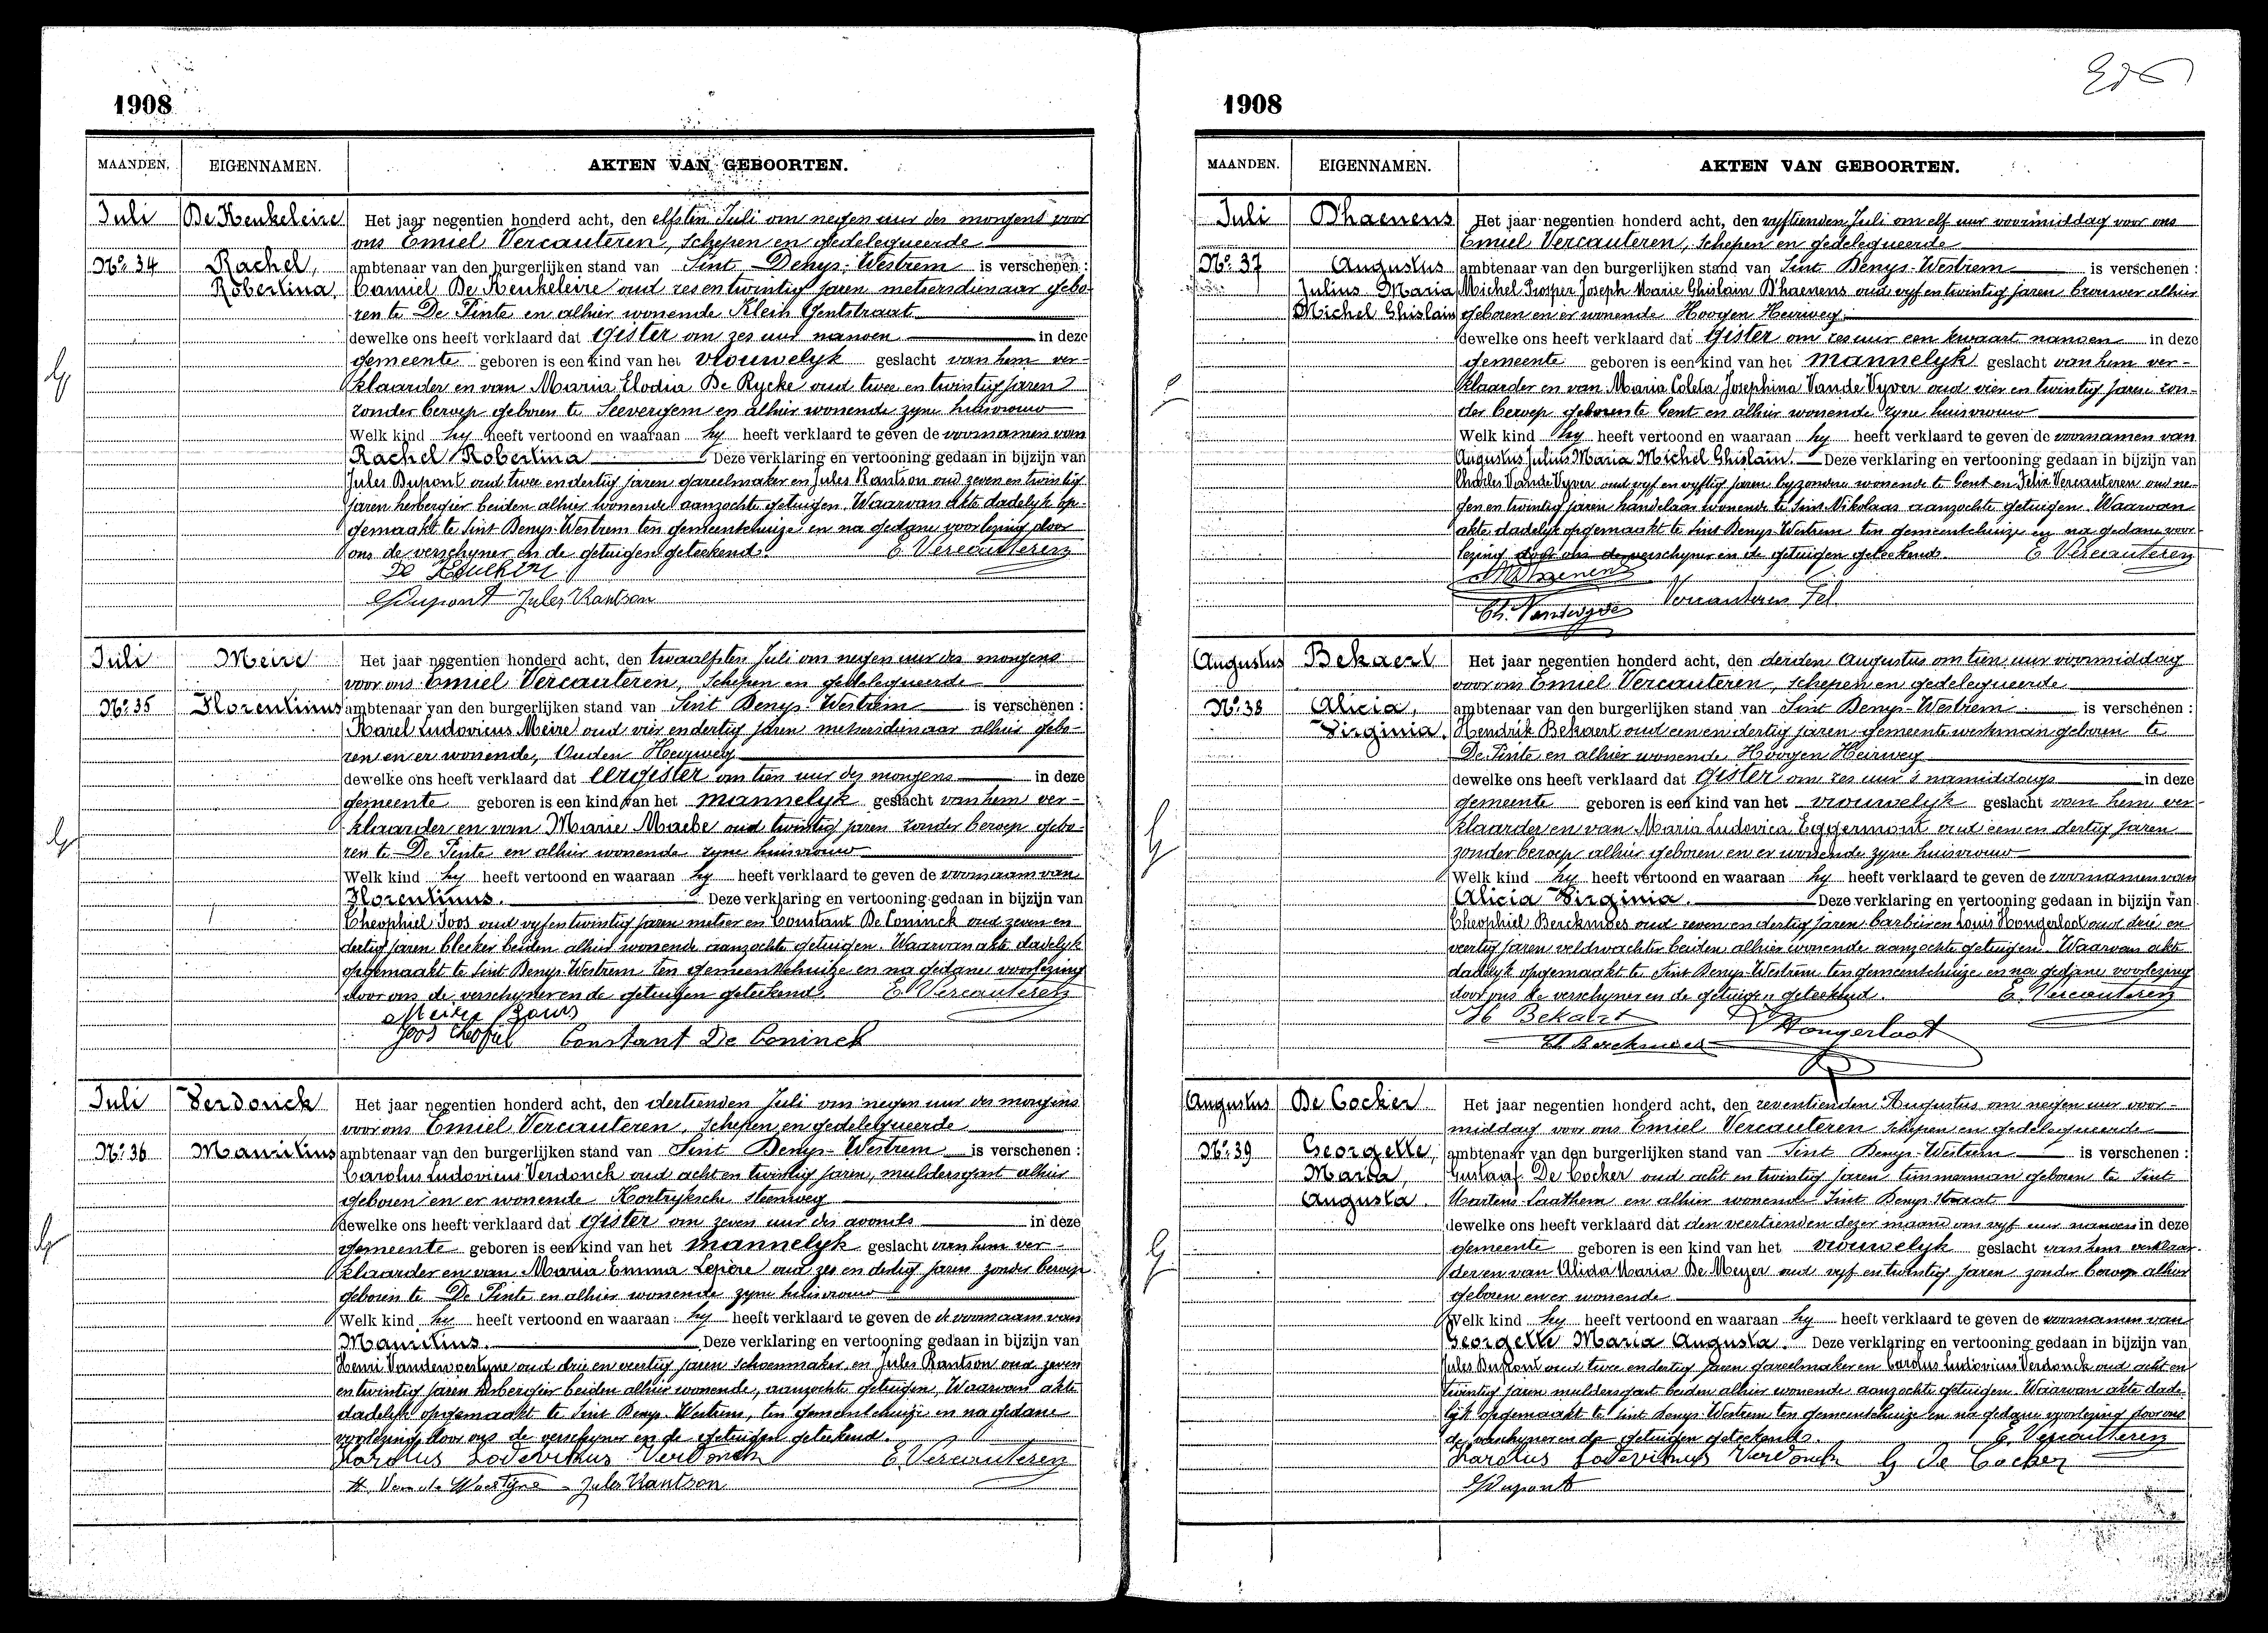 1908
MAANDEN. EIGENNAMEN. AKTEN VAN GEBOORTEN.
Juli De Keukeleire Het jaar negentien honderd acht, den elfsten Juli om negen uur des morgens voor
ons Emiel Vercauteren, Schepen en gedelegueerde
No. 34 Rachel, ambtenaar van den burgerlijken stand van Sint Denys-Westrem is verschenen :
Robertina. Camiel De Keukeleire oud zes en twintig jaren metsersdienaar gebo-
ren te De Pinte en alhier wonende Klein Gentstraat
dewelke ons heeft verklaard dat Gister om zes uur nanoen in deze
gemeente geboren is een kind van het vrouwelyk geslacht van hem ver-
klaarder en van Maria Elodia De Rycke oud twee en twintig jaren
zonder beroep geboren te Seevergem en alhier wonende zyne huisvrouw
Welk kind hy heeft vertoond en waaraan hy heeft verklaard te geven de voornamen van
Rachel Robertina Deze verklaring en vertooning gedaan in bijzijn van
Jules Dupont oud twee en dertig jaren gareelmaker en Jules Rantson oud zeven en twintig
jaren herbergier beiden alhier wonende aanzochte getuigen. Waarvan akte dadelyk op-
gemaakt te Sint Denys-Westrem ten gemeentehuize en na gedane voorlezing door
ons de verschyner en de getuigen geteekend. E. Vercauteren
Dupont Jules Rantson
Juli Meire Het jaar negentien honderd acht, den twaalfsten Juli om negen uur des morgens
voor ons Emiel Vercauteren, Schepen en gedelegueerde
No. 35 Florentinus ambtenaar van den burgerlijken stand van Sint Denys-Westrem is verschenen :
Karel Ludovicus Meire oud vier en dertig jaren metsersdienaar alhier gebo-
ren en er wonende, Ouden Heerweg
dewelke ons heeft verklaard dat eergister om tien uur des morgens in deze
gemeente geboren is een kind van het mannelyk geslacht van hem ver-
klaarder en van Marie Maebe oud twintig jaren zonder beroep gebo-
ren te De Pinte en alhier wonende zyne huisvrouw
Welk kind hy heeft vertoond en waaraan hy heeft verklaard te geven de voornaam van
Florentinus. Deze verklaring en vertooning gedaan in bijzijn van
Theophiel Joos oud vyf en twintig jaren metser en Constant De Coninck oud zeven en
dertig jaren bleeker beiden alhier wonende aanzochte getuigen. Waarvan akte dadelyk
opgemaakt te Sint Denys-Westrem ten gemeentehuize en na gedane voorlezing
door ons de verschyner en de getuigen geteekend. E. Vercauteren
Joos Theofiel Constant De Coninck
Juli Verdonck Het jaar negentien honderd acht, den dertienden Juli om negen uur des morgens
voor ons Emiel Vercauteren, Schepen en gedelegueerde
No. 36 Mauritius ambtenaar van den burgerlijken stand van Sint Denys-Westrem is verschenen :
Carolus Ludovicus Verdonck oud acht en twintig jaren, muldersgast alhier
geboren en er wonende Kortryksche steenweg
dewelke ons heeft verklaard dat Gister om zeven uur des avonds in deze
gemeente geboren is een kind van het mannelyk geslacht van hem ver-
klaarder en van Maria Emma Lepère oud zes en dertig jaren zonder beroep
geboren te De Pinte en alhier wonende zyne huisvrouw
Welk kind hy heeft vertoond en waaraan hy heeft verklaard te geven de de voornaam van
Mauritius. Deze verklaring en vertooning gedaan in bijzijn van
Henri Vandewoestyne oud drie en veertig jaren schoenmaker en Jules Rantson oud zeven
en twintig jaren herbergier beiden alhier wonende, aanzochte getuigen, Waarvan akte
dadelyk opgemaakt te Sint Denys-Westrem, ten gemeentehuize en na gedane
voorlezing door ons de verschyner en de getuigen geteekend.
Karolus Lodevikus Verdonck E. Vercauteren
H. Van de Woestyne Jules Rantson
1908
MAANDEN. EIGENNAMEN. AKTEN VAN GEBOORTEN.
Juli D'haenens Het jaar negentien honderd acht, den vyftienden Juli om elf uur voormiddag voor ons
Emiel Vercauteren, Schepen en gedelegueerde
No. 37 Augustus ambtenaar van den burgerlijken stand van Sint Denys-Westrem is verschenen :
Julius Maria Michel Prosper Joseph Marie Ghislain D'haenens oud vyf en twintig jaren brouwer alhier
Michel Ghislain geboren en er wonende Hoogen Heirweg
dewelke ons heeft verklaard dat Gister om zes uur een kwaart nanoen in deze
gemeente geboren is een kind van het mannelyk geslacht van hem ver-
klaarder en van Maria Coleta Josephina Vande Vyver oud vier en twintig jaren zon-
der beroep geboren te Gent en alhier wonende zyne huisvrouw
Welk kind hy heeft vertoond en waaraan hy heeft verklaard te geven de voornamen van
Augustus Julius Maria Michel Ghislain. Deze verklaring en vertooning gedaan in bijzijn van
Charles Vande Vyver oud vyf en vyftig jaren byzondere wonende te Gent en Felix Vercauteren oud ne-
gen en twintig jaren handelaar wonende te Sint-Nikolaas aanzochte getuigen. Waarvan
akte dadelyk opgemaakt te Sint Denys-Westrem ten gemeentehuize en na gedane voor-
lezing door ons de verschyner en de getuigen geteekend. E. Vercauteren
Ch. Vandevyver Vercauteren Fel.
Augustus Bekaert Het jaar negentien honderd acht, den derden Augustus om tien uur voormiddag
voor ons Emiel Vercauteren, Schepen en gedelegueerde
No. 38 Alicia, ambtenaar van den burgerlijken stand van Sint Denys-Westrem is verschenen :
Virginia. Hendrik Bekaert oud een en dertig jaren gemeente werkman geboren te
De Pinte en alhier wonende Hoogen Heirweg
dewelke ons heeft verklaard dat Gister om zes uur 's namiddags in deze
gemeente geboren is een kind van het vrouwelyk geslacht van hem ver-
klaarder en van Maria Ludovica Eggermont oud een en dertig jaren
zonder beroep alhier geboren en er wonende zyne huisvrouw
Welk kind hy heeft vertoond en waaraan hy heeft verklaard te geven de voornamen van
Alicia Virginia. Deze verklaring en vertooning gedaan in bijzijn van
Theophiel Berckmoes oud zeven en dertig jaren barbier en Louis Hongerloot oud drie en
veertig jaren veldwachter beiden alhier wonende aanzochte getuigen. Waarvan akte
dadelyk opgemaakt te Sint Denys-Westrem ten gemeentehuize en na gedane voorlezing
door ons de verschyner en de getuigen geteekend. E. Vercauteren
H Bekaert Hongerloot
Th Berckmoes
Augustus De Cocker Het jaar negentien honderd acht, den zeventienden Augustus om negen uur voor-
middag voor ons Emiel Vercauteren Schepen en gedelegueerde
No. 39 Georgette, ambtenaar van den burgerlijken stand van Sint Denys-Westrem is verschenen :
Maria, Gustaaf De Cocker oud acht en twintig jaren timmerman geboren te Sint
Augusta. Martens-Laathem en alhier wonende Sint Denys straat
dewelke ons heeft verklaard dat den veertienden dezer maand om vyf uur nanoen in deze
gemeente geboren is een kind van het vrouwelyk geslacht van hem verklaar-
der en van Alida Maria De Meyer oud vyf en twintig jaren zonder beroep alhier
geboren en er wonende
Welk kind hy heeft vertoond en waaraan hy heeft verklaard te geven de voornamen van
Georgette Maria Augusta. Deze verklaring en vertooning gedaan in bijzijn van
Jules Dupont oud twee en dertig jaren gareelmaker en Carolus Ludovicus Verdonck oud acht en
twintig jaren muldersgast beiden alhier wonende aanzochte getuigen. Waarvan akte dade-
lyk opgemaakt te Sint Denys-Westrem ten gemeentehuize en na gedane voorlezing door ons
de verschyner en de getuigen geteekend. E. Vercauteren
Karolus Lodevikus Verdonck G De Cocker
Dupont